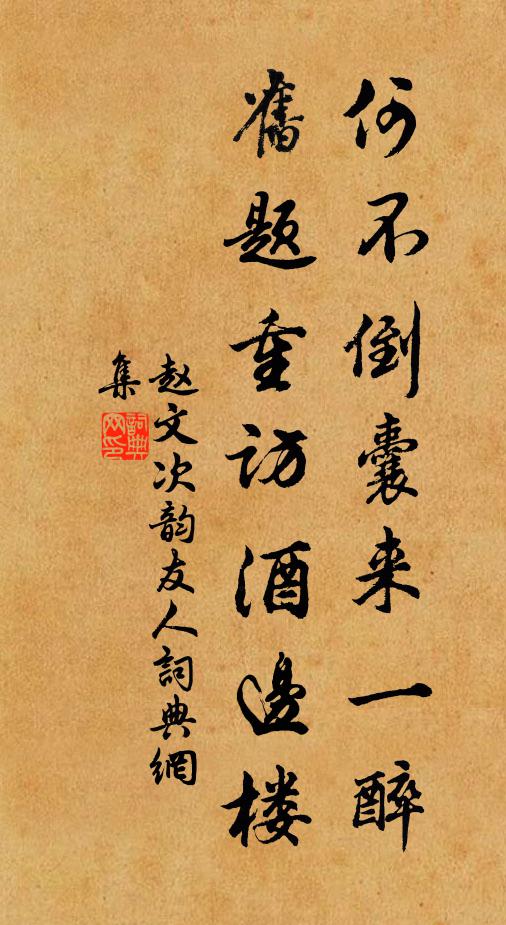 何不倒囊来一醉
旧题重访酒邊楼
赵文次韵友人詞典網
集
詞典
网印